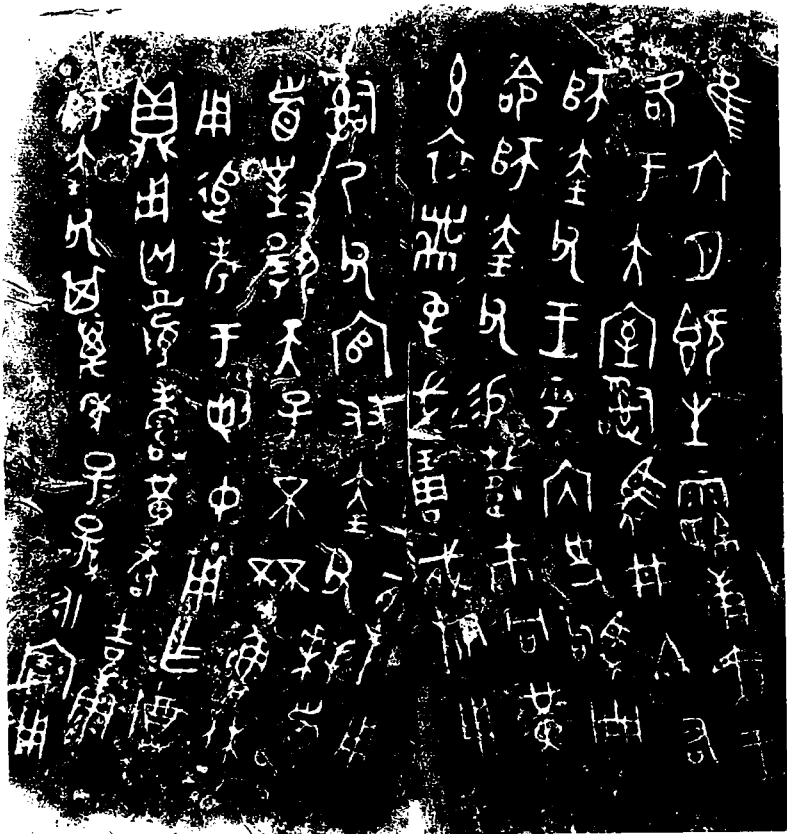 隹六月既生霸庚寅王
各于大室𤔲馬井白右
師𡘇父王乎内史駒冊
命師𡘇父易載巿冋黃
玄衣黹屯戈琱㦰旂用
𤔲乃父官友𡘇父拜𩒨
首對揚天子不㔻魯休
用追考于剌中用乍𬯚
鼎用匄眉壽黃耇吉康
師𡘇父其萬年子子孫永寶用